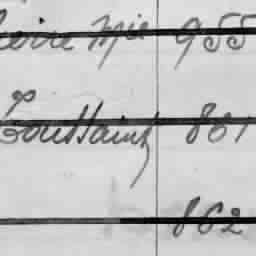 Pierre Mie 955
Toussaint 861
862